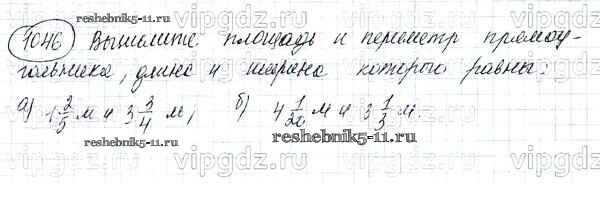 reshebnik5-11.ru
1046 Вычислите площадь и периметр прямоу-
гольника, длина и ширина которого равны:
а) 1 2/5 м и 3 3/4 м; б) 4 1/20 м и 3 1/3 м.
reshebnik5-11.ru
reshebnik5-11.ru
vipgdz.ru vipgdz.ru vipgdz.ru vipgdz.ru